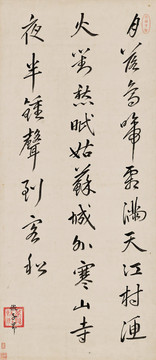 月落烏啼霜滿天江村漁
火對愁眠姑蘇城外寒山寺
夜半鍾聲到客舩